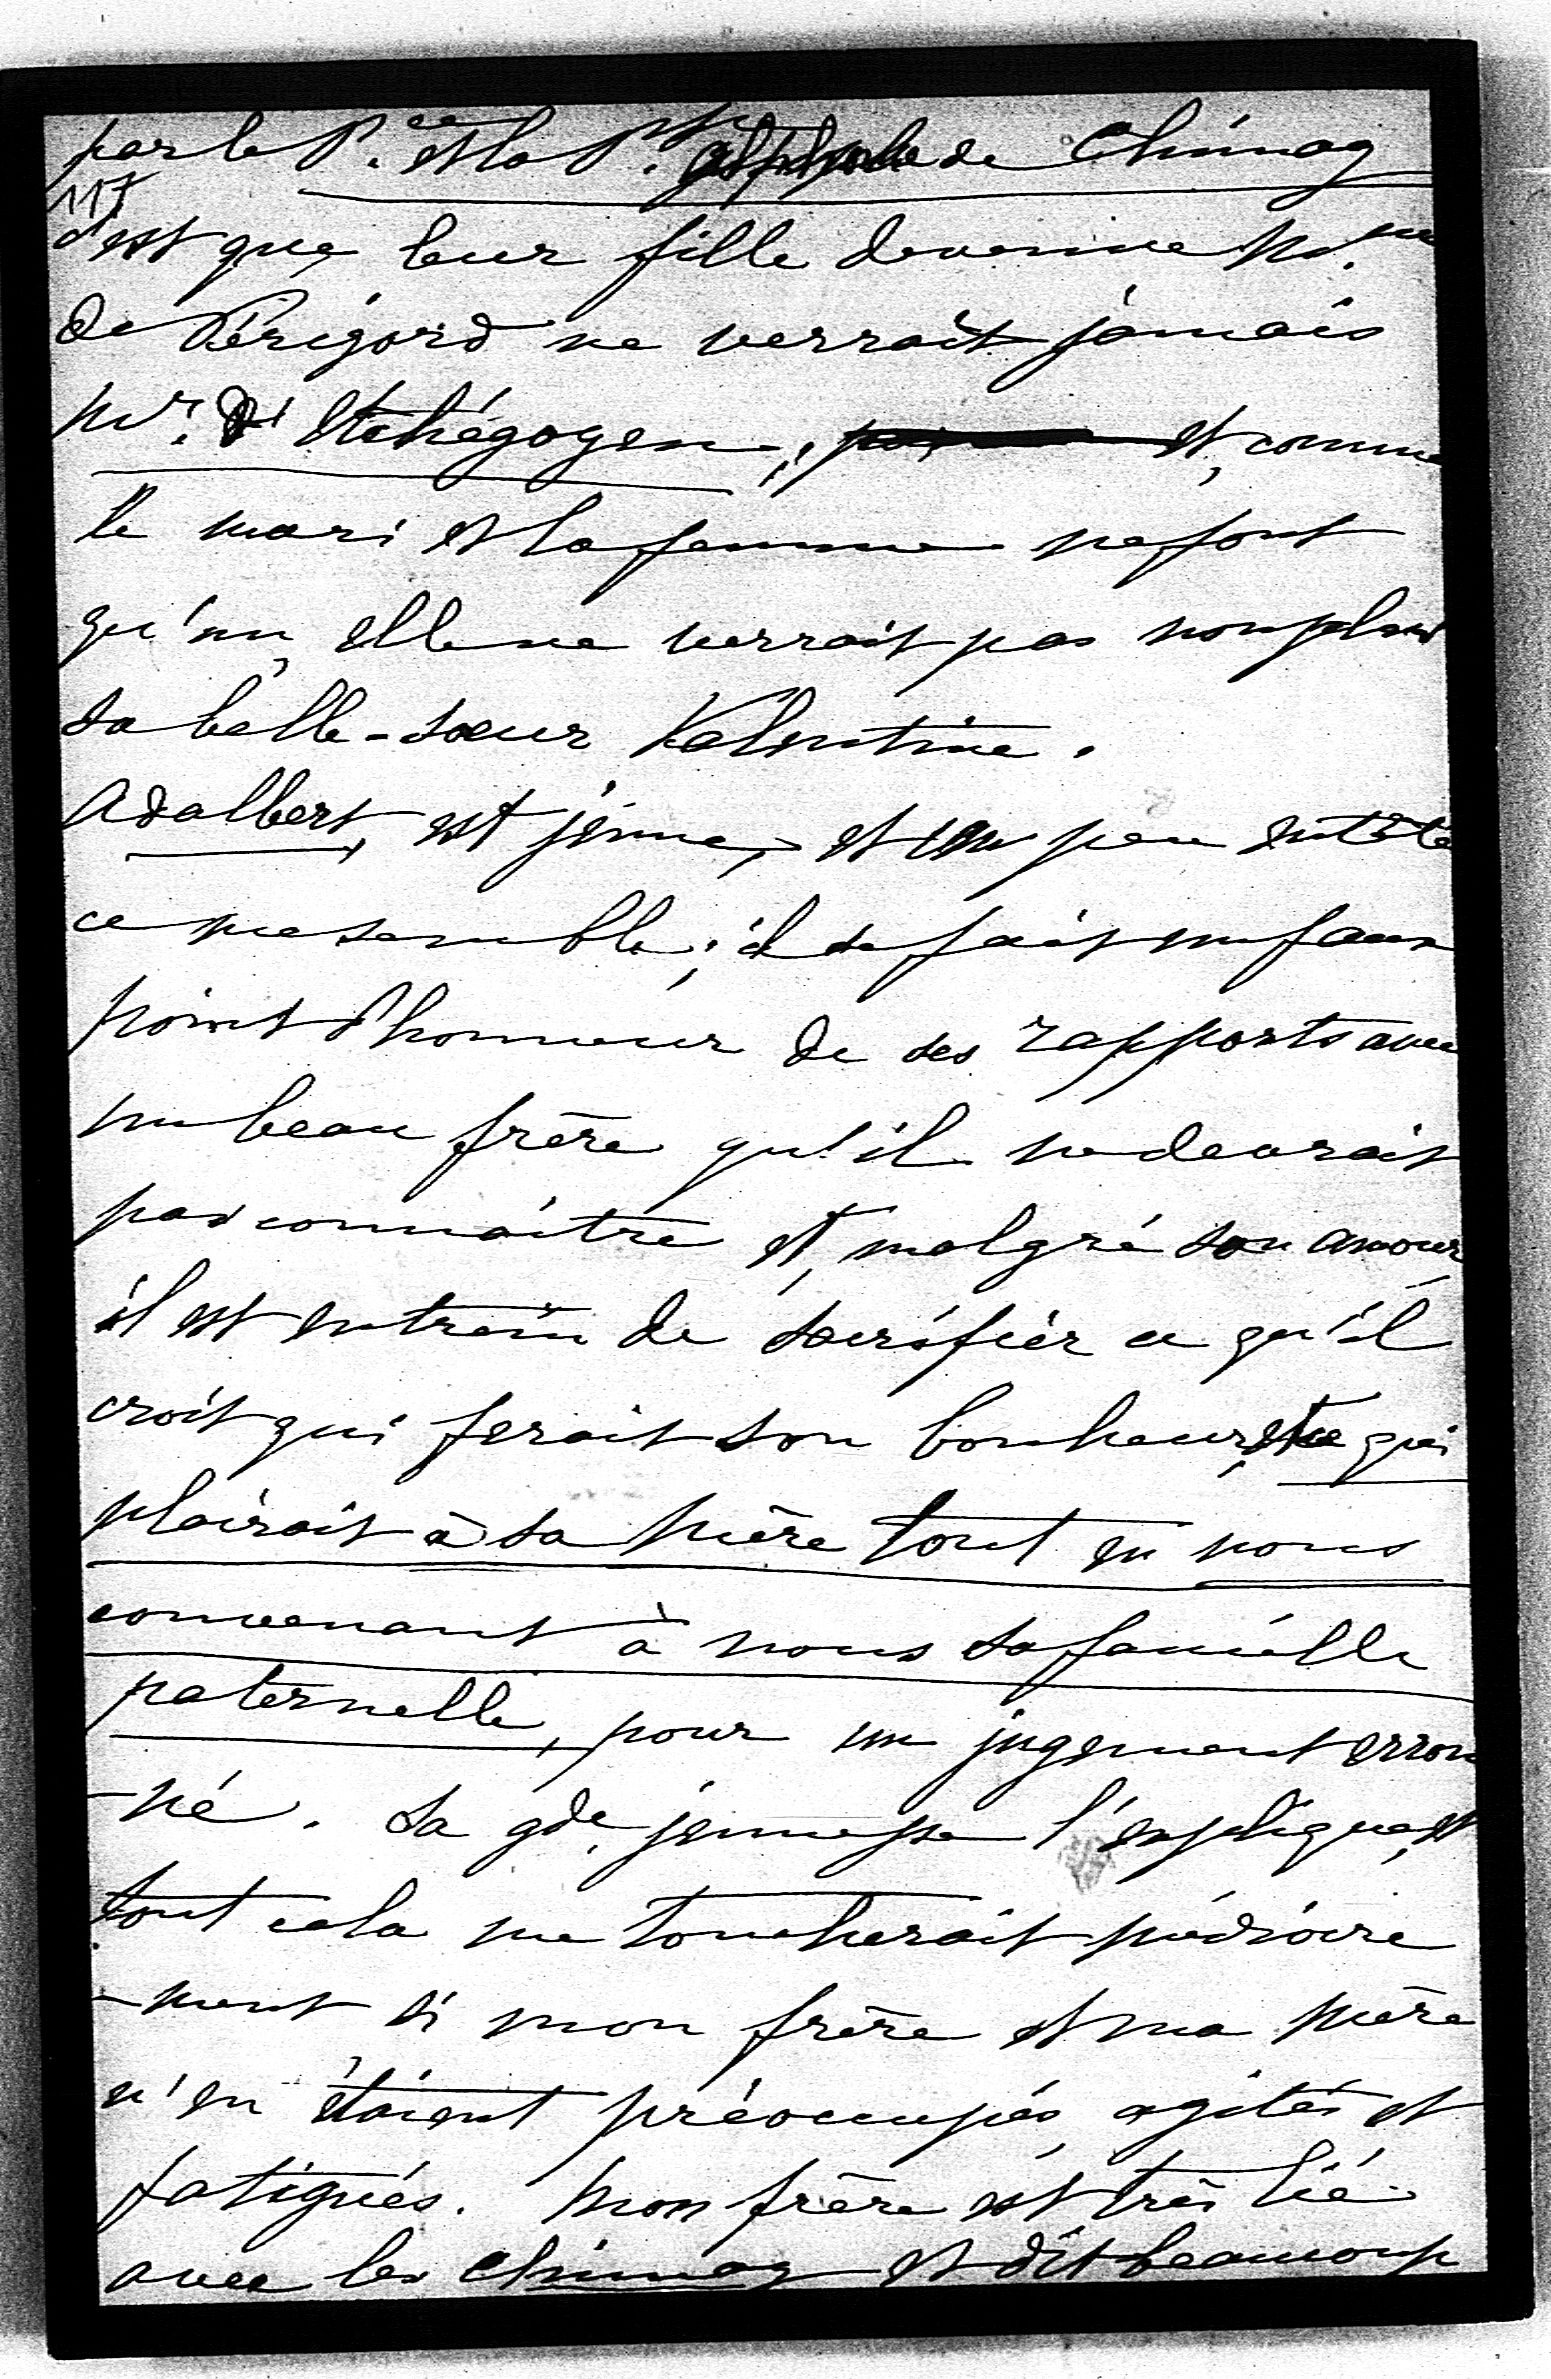 par le P.ce et la P.sse de Chimay
117
c'est que leur fille devenue M.me
de Périgord ne verrait jamais
Mr. d'Etchégoyen, et, comme
le mari et la femme ne font
qu'un, elle ne verrait pas non plus
sa belle-soeur Valentine.
Adalbert, est jeune, et un peu entêté
ce me semble; il se fait un faux
point d'honneur de ses rapports avec
un beau frère qu'il ne devrait
pas connaître et, malgré son amour,
il est entrain de sacrifier ce qu'il
croit qui ferait son bonheur, et ce qui
plairait à sa mère tout en nous
convenant à nous sa famille
paternelle, pour un jugement erron
-né. Sa gde. jeunesse l'explique, et
tout cela me toucherait médiocre
-ment si mon frère et ma mère
n'en étaient préoccupés, agités et
fatigués. Mon frère est très lié
avec les Chimay et dit beaucoup